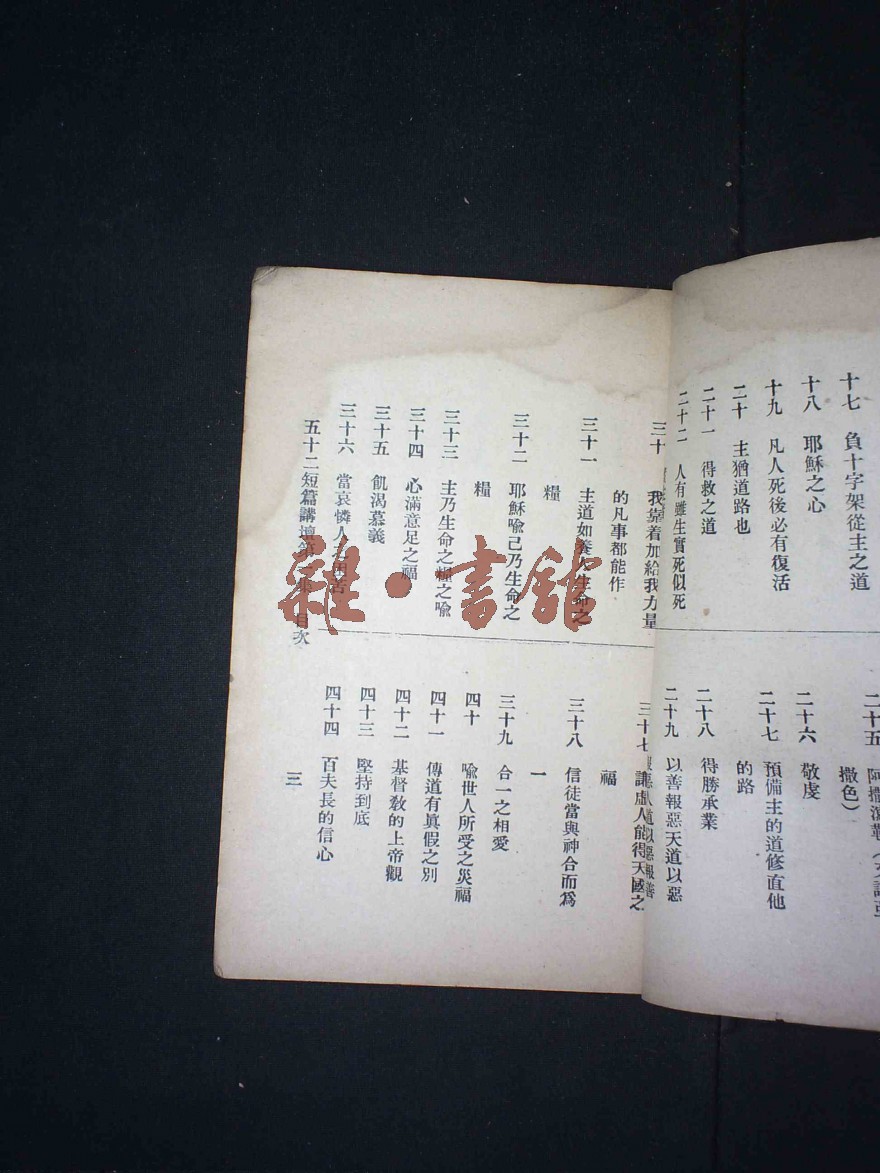 十七 負十字架從主之道
十八 耶穌之心
十九 凡人死後必有復活
二十 主猶道路也
二十一 得救之道
二十二 人有雖生實死似死
二十五
撒色）
二十六 敬虔
二十七 預備主的道修直他
的路
二十八 得勝承業
二十九 以善報惡天道以惡
三十 我靠着加給我力量
的凡事都能作
三十一 主道如養人生命之
糧
三十二 耶穌喩己乃生命之
糧
三十三 主乃生命之糧之喩
三十四 心滿意足之福
三十五 飢渴慕義
三十六 當哀憐人之困苦
三十七 謙虛人能得天國之
福
三十八 信徒當與神合而爲
一
三十九 合一之相愛
四十 喩世人所受之災福
四十一 傳道有眞假之別
四十二 基督敎的上帝觀
四十三 堅持到底
四十四 百夫長的信心
五十二短篇講壇第 目次
三
雜·書館